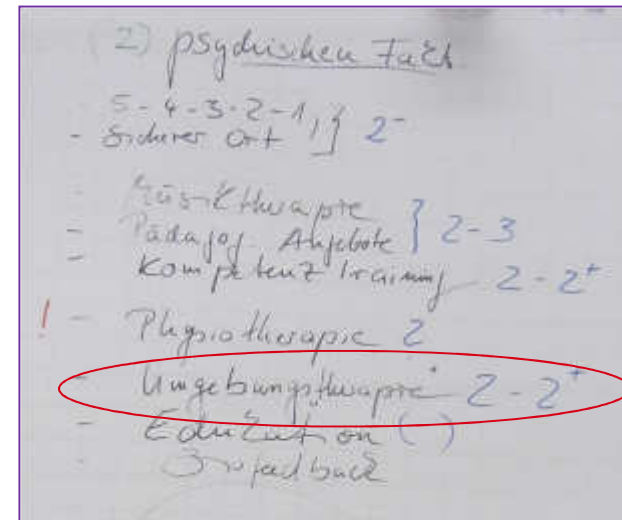 (2) psychischen Fakt.
5-4-3-2-1,
- Sicherer Ort } 2-
- Musiktherapie
- Pädagog. Angebote } 2-3
- Kompetenztraining 2-2+
! - Physiotherapie 2
- Umgebungstherapie" 2-2+
- Edukation ( )
- Biofeedback